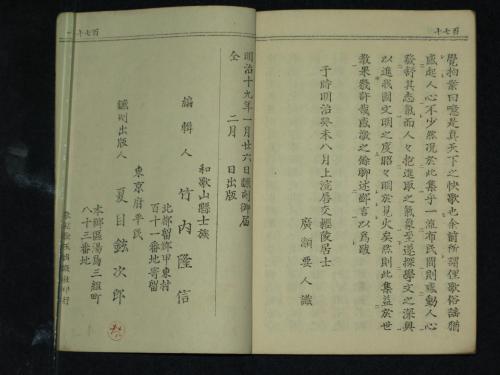 百七十
覺抱業曰噫是真天下之快歌也余前所謂俚歌俗謡猶
感起人心不少然况於此集乎一流布民間則感動人心
發舒其志氣而人々抱進取之氣象至遂探學文之深奥
以進我國文明之度昭々乎明於見火矣然則此集益於世
教果幾許哉感激之餘聊述鄙言以爲跋
于時明治癸未八月上浣居士
廣瀬要人識
百七十一
明治十九年一月廿六日飜刻御届
仝 二月 日出版
和歌山縣士族
編輯人 竹内隆信
北郷甲東村
百十一番地寄留
東京府平民
飜刻出版人 夏目鉉次郎
本郷區湯島三組町
八十三番地